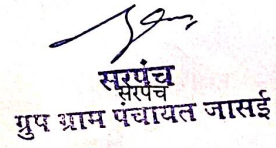 सरपंच
सरपंच
ग्रुप ग्राम पंचायत जासई